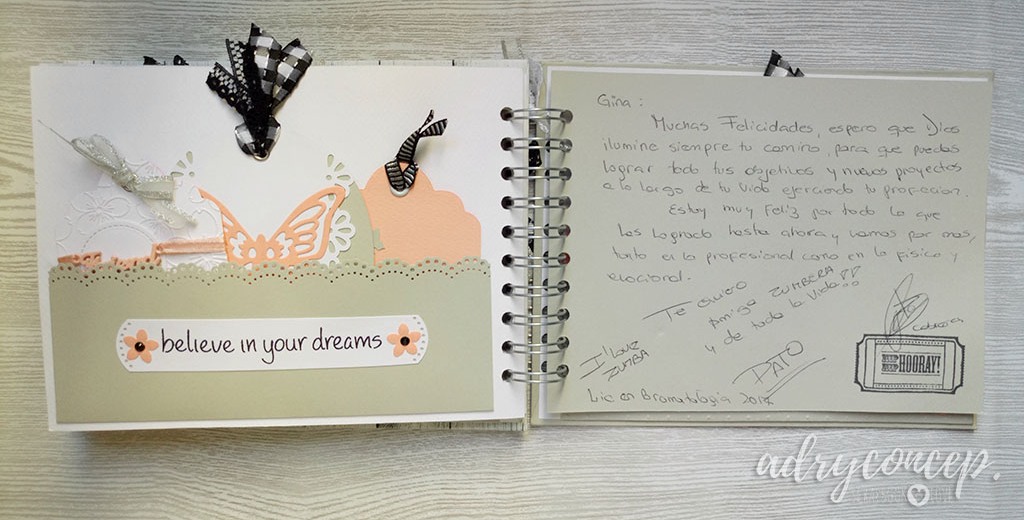 believe in your dreams
Gina:
Muchas Felicidades, espero que Dios
ilumine siempre tu camino, para que puedas
lograr todo tus objetivos y nuevos proyectos
a lo largo de tu vida ejerciendo tu profesion.
Estoy muy feliz por todo lo que
has logrado hasta ahora y vamos por mas,
tanto en lo profesional como en lo físico y
emocional.
Te quiero
Amiga ZUMBERA!!
y de toda la vida!!
I! Love
ZUMBA
DATO
Lic en Bromatología
HEEP HEEP HOORAY!
adryconcep.